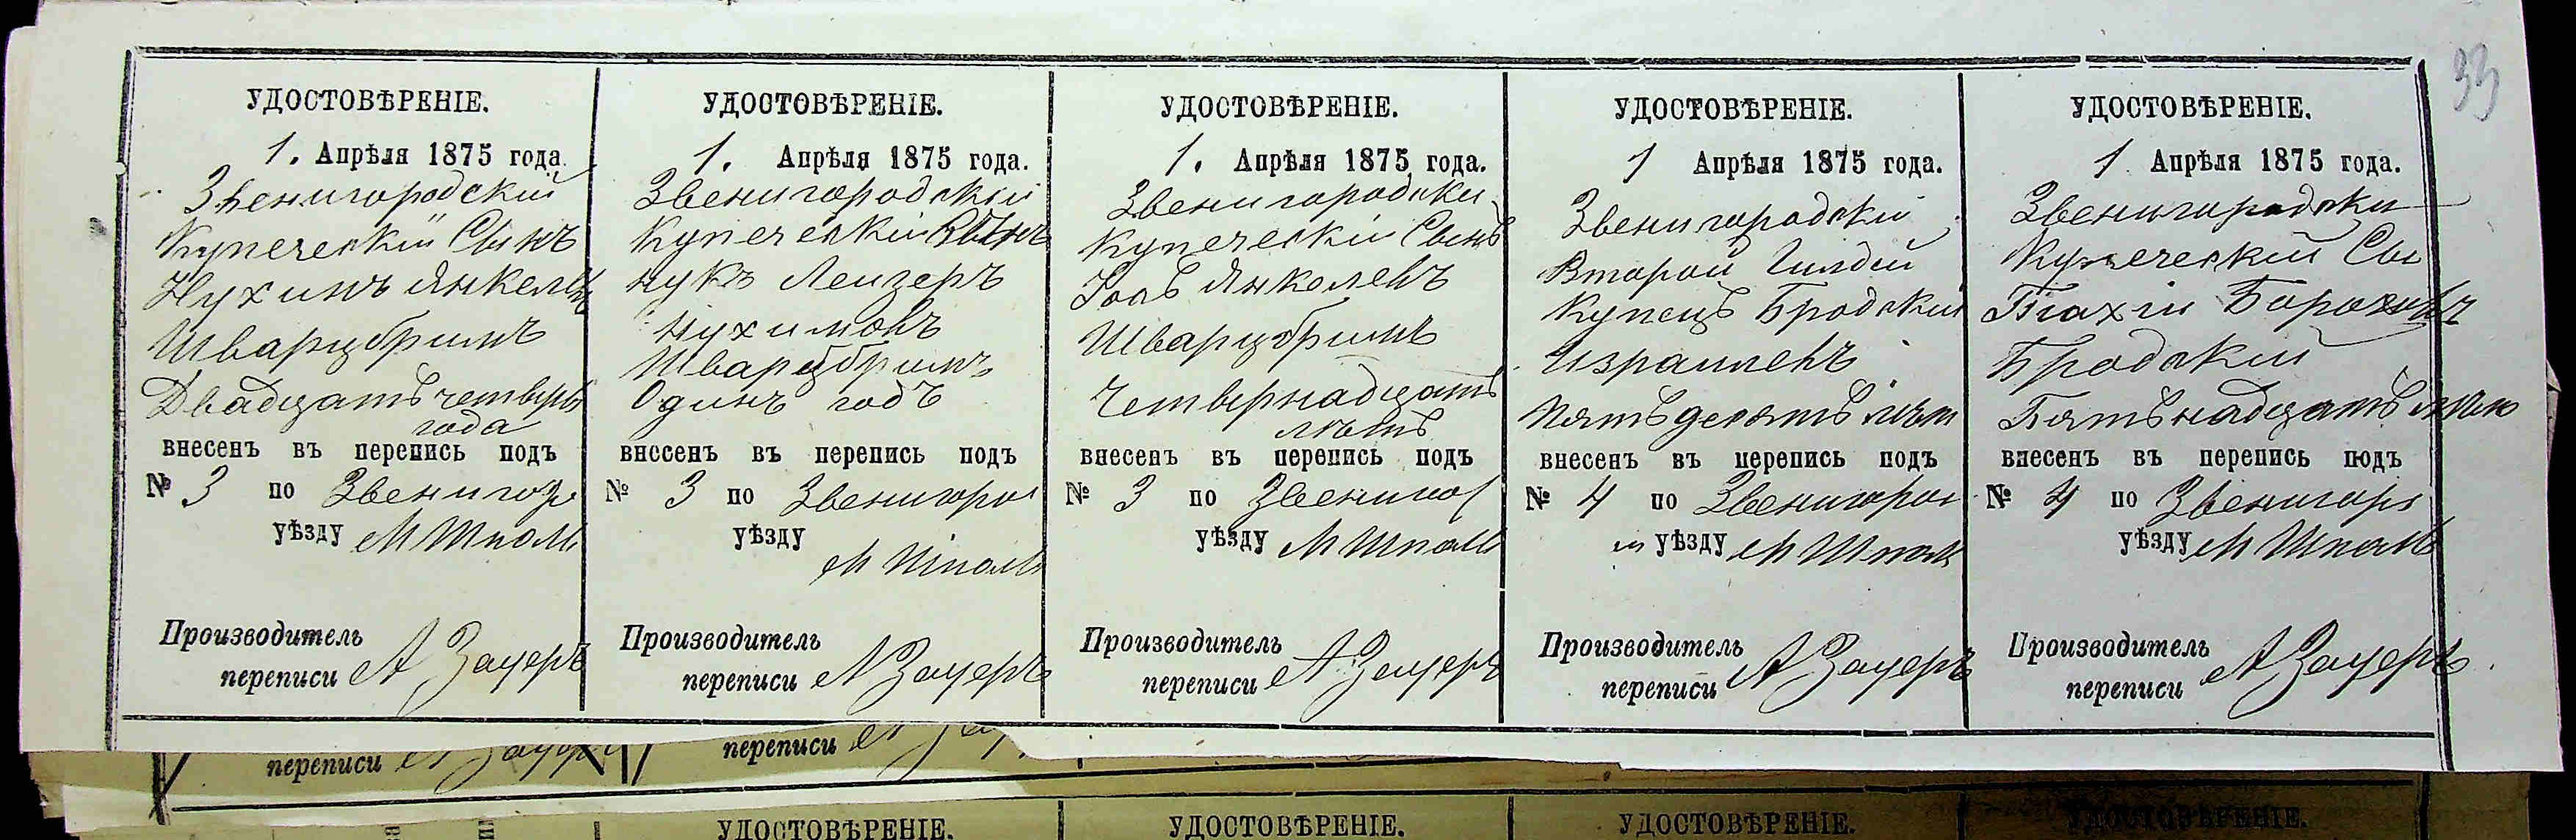 33
УДОСТОВѢРЕНІЕ.
1. Апрѣля 1875 года.
Звенигородскій
Купеческій Сынъ
Нухимъ Янкелевъ
Шварцбримъ
Двадцать четыре
года
внесенъ въ перепись подъ
№ 3 по Звенигор
уѣзду М Шпола
Производитель
переписи А Зауеръ
УДОСТОВѢРЕНІЕ.
1. Апрѣля 1875 года.
Звенигородскій
Купеческій
нукъ Лейзеръ
Нухимовъ
Шварцбримъ
Одинъ годъ
внесенъ въ перепись подъ
№ 3 по Звенигоро
уѣзду
М Шпола
Производитель
переписи А Зауеръ
УДОСТОВѢРЕНІЕ.
1. Апрѣля 1875 года.
Звенигородскі
Купескій Сынъ
Янкелевъ
Шварцбримъ
Четырнадцать
лѣтъ
внесенъ въ перепись подъ
№ 3 по Звениго
уѣзду М Шпола
Производитель
переписи А Зауеръ
УДОСТОВѢРЕНІЕ.
1 Апрѣля 1875 года.
Звенигородскій
Второй Гилдіи
Купецъ Бродскій
Израилевъ
Пятьдесятъ лѣт
внесенъ въ перепись подъ
№ 4 по Звенигоро
уѣзду М Шпола
Производитель
переписи А Зауеръ
УДОСТОВѢРЕНІЕ.
1 Апрѣля 1875 года.
Звенигородски
Купеческій Сы
Бороховъ
Бродскій
Пятьнадцать лѣт
внесенъ въ перепись подъ
№ 4 по Звенигор
уѣзду М Шпола
Производитель
переписи А Зауеръ
переписи А Зауеръ
переписи А
УДОСТОВѢРЕНІЕ.
УДОСТОВѢРЕНІЕ.
УДОСТОВѢРЕНІЕ.
УДОСТОВѢРЕНІЕ.